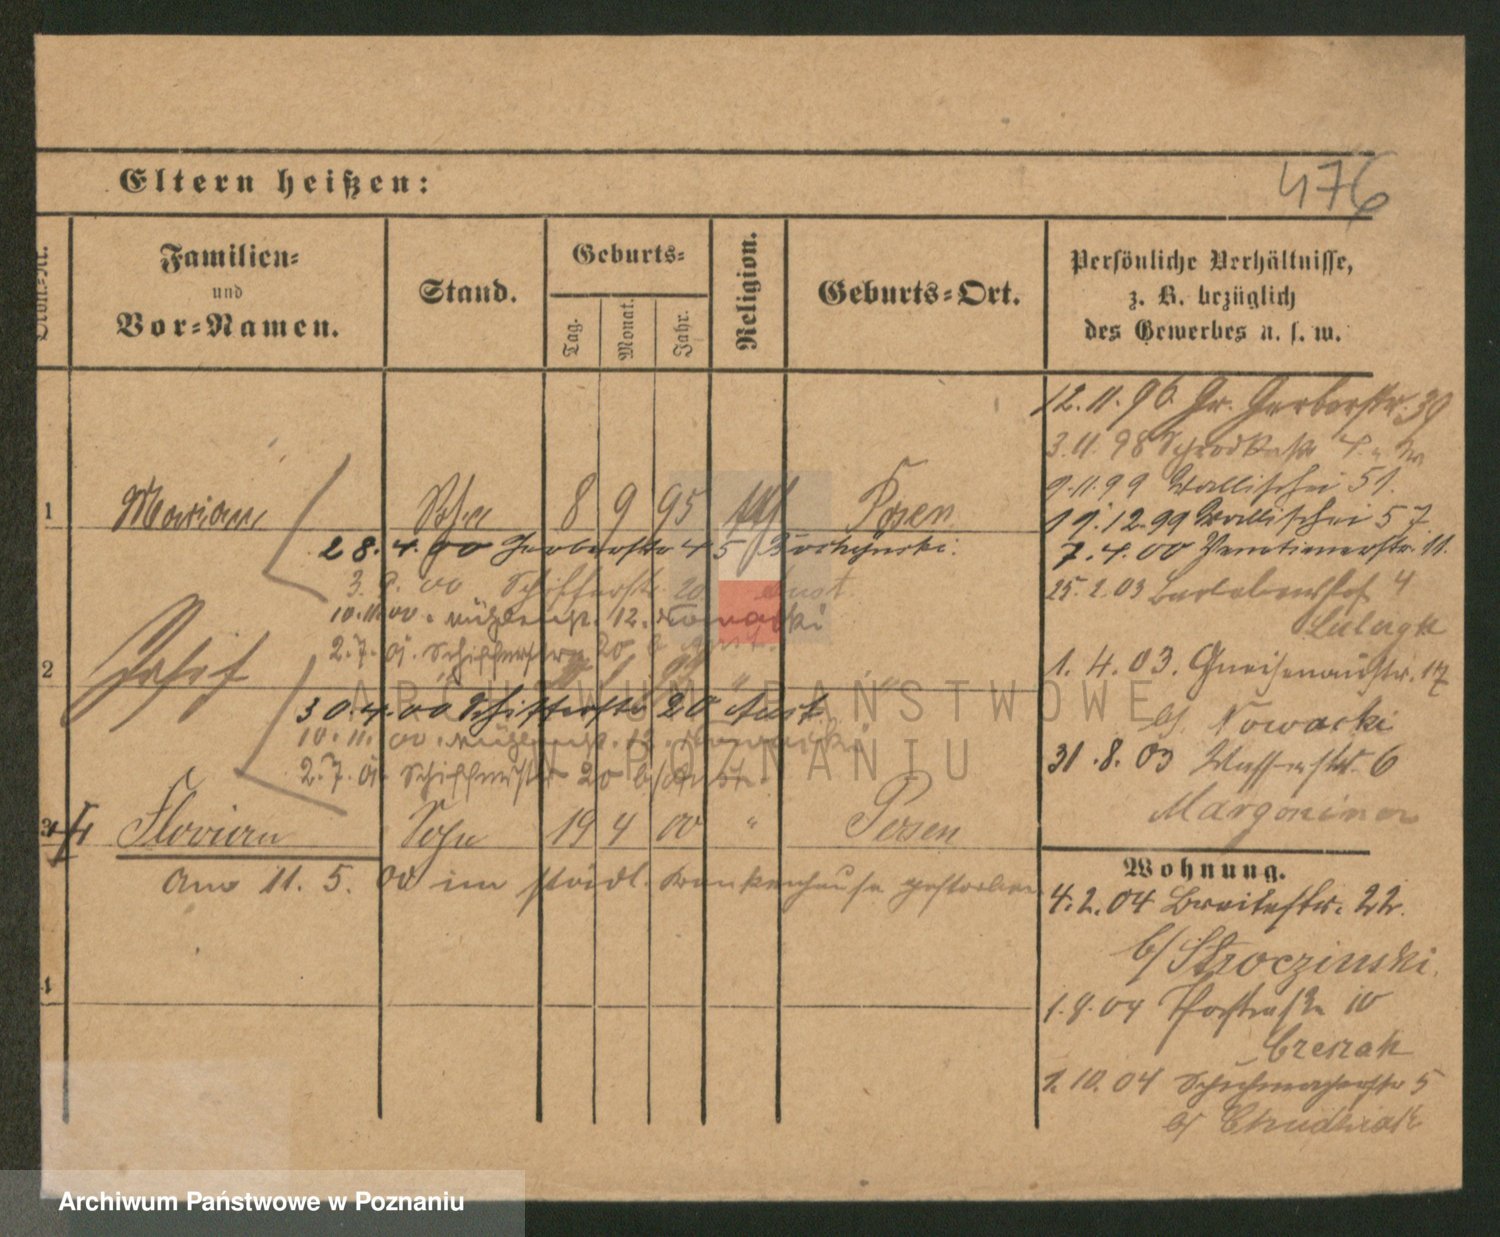 Eltern heißen:
476
Familien=
und
Vor=Namen.
Stand.
Geburts=
Tag.
Monat.
Jahr.
Religion.
Geburts=Ort.
Persönliche Verhältnisse,
z. B. bezüglich
des Gewerbes u. s. w.
12.11.96 Gr. Gerberstr. 39
3.11.98 Schrodkastr. 4
9.11.99 Wallischei 51.
19.12.99 Wallischei 57
7.4.00 Venetianerstr. 11.
25.2.03 4
1.4.03. Gneisenaustr. 17
b/ Nowacki
31.8.03 Wasserstr. 6
Margoniner
1 Marian Sohn 8 9 95 kth Posen
28.4.00 Gerberstr 45
3. 00 Schifferstr. 20 Aust.
10.11.00. Mühlenstr. 12. Nowacki
2.7.01. Schifferstr. 20 b Aust.
2 Josef
30.4.00 Schifferstr 20 Aust
10.11.00. Mühlenstr. 12. Nowacki
2.7.01. Schifferstr 20 b/
3 Florian Sohn 19 4 00 " Posen
Am 11.5.00 im städt. Krankenhause gestorben
4
Wohnung.
4.2.04 Breitestr. 22.
b/ Stroczinski.
1.8.04 10
1.10.04 Schuhmacherstr 5
ARCHIWUM PAŃSTWOWE
W POZNANIU
Archiwum Państwowe w Poznaniu